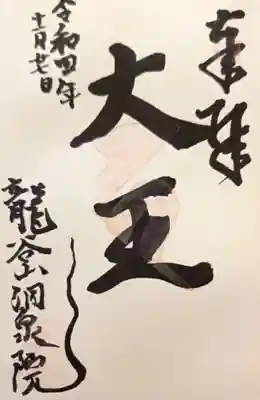 奉拝
大王
龍谷山洞泉院
令和四年
十一月廿七日